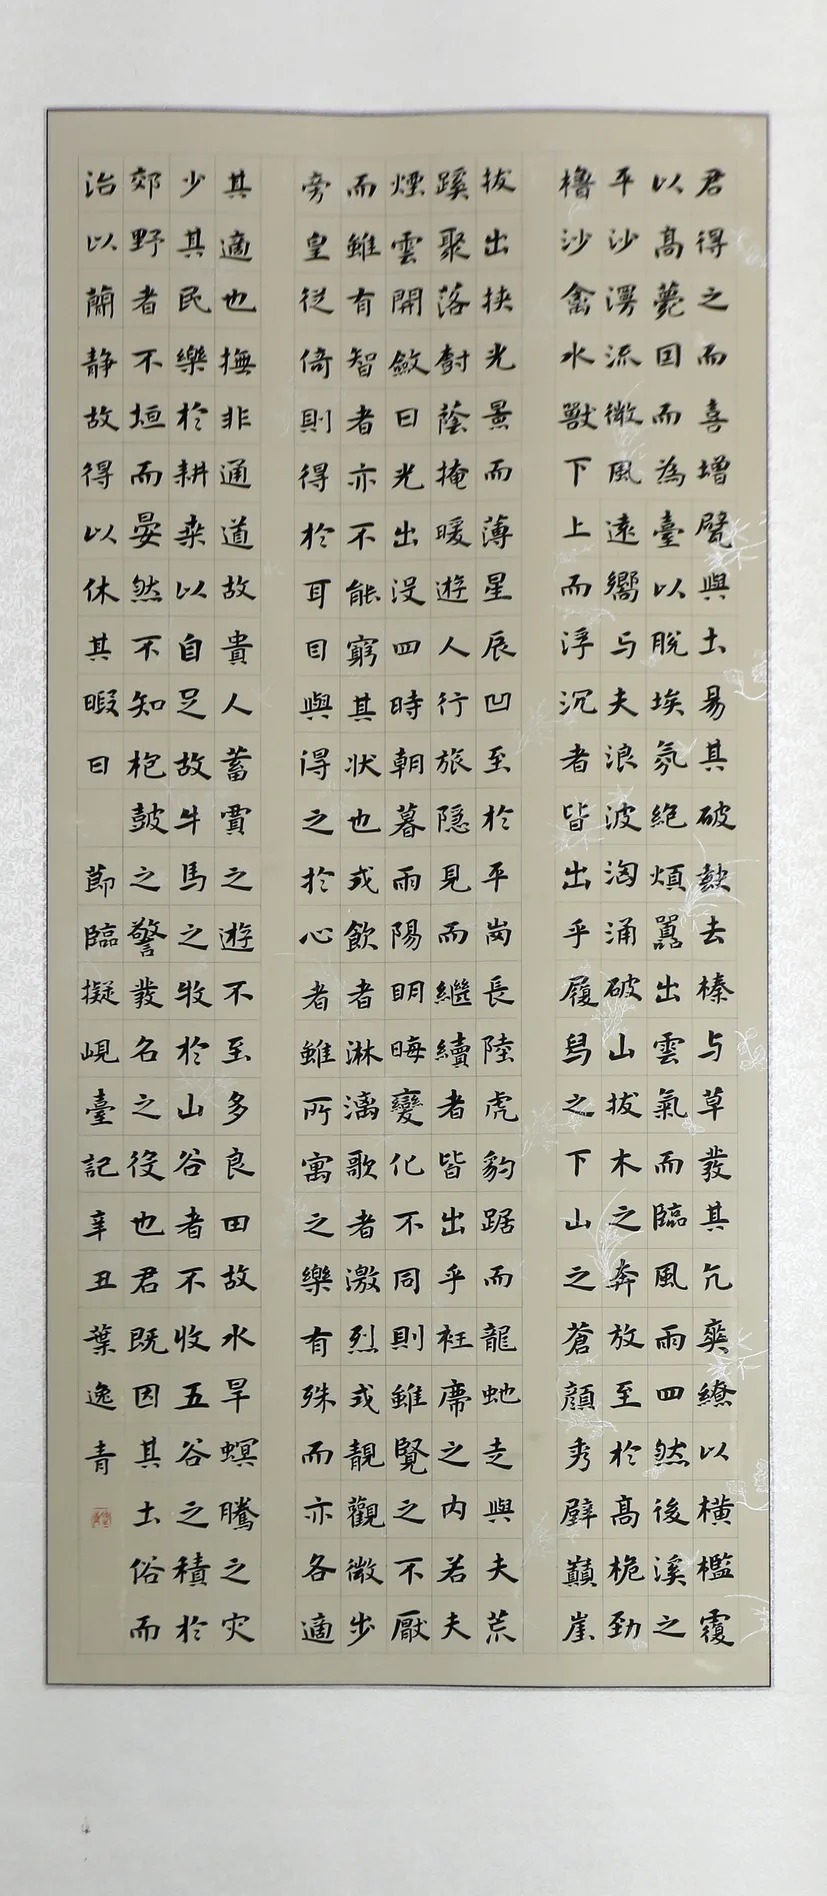 君得之而喜增甓與土易其破缺去榛与草發其亢爽繚以橫檻覆
以高甍囙而為臺以脫埃氛絶煩囂出雲氣而臨風雨四然後溪之
平沙漫流微風遠嚮与夫浪波洶涌破山拔木之奔放至於高桅勁
櫓沙禽水獸下上而浮沉者皆出乎履舄之下山之蒼顔秀壁巔崖
拔出挾光景而薄星辰凹至於平崗長陸虎豹踞而龍虵走與夫荒
蹊聚落樹蔭掩曖遊人行旅隱見而繼續者皆出乎衽席之內若夫
煙雲開斂日光出沒四時朝暮雨陽明晦變化不同則雖覽之不厭
而雖有智者亦不能窮其狀也或飲者淋漓歌者激烈或靚觀微步
旁皇徙倚則得於耳目與得之於心者雖所寓之樂有殊而亦各適
其適也撫非通道故貴人蓄賈之遊不至多良田故水旱螟螣之灾
少其民樂於耕桑以自足故牛馬之牧於山谷者不收五谷之積於
郊野者不垣而晏然不知枹鼓之警發名之役也君既因其土俗而
治以蕳静故得以休其暇日 節臨擬峴臺記辛丑葉逸青